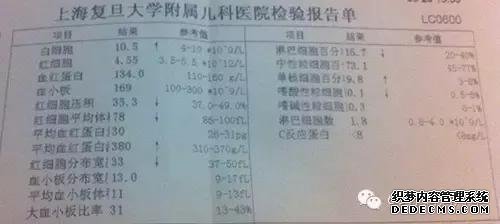 上海复旦大学附属儿科医院检验报告单
LC0600
项目 结果 参考值 项目 结果 参考值
白细胞 10.5 ↑ 4-10 *10^9/L 淋巴细胞百分 16.↑ ↓ 20-40%
红细胞 4.55 3.5-5.5 *10^12/L 中性粒细胞 73.1 45-77%
血红蛋白 134.0 110-160 g/L 单核细胞百分 9.8 ↑ 3-8%
血小板 169 100-300 *10^9/L 嗜酸性粒细胞 0.1 ↓ 0.5-5%
红细胞压积 35.3 ↓ 37.0-49.0% 嗜碱性粒细胞 0.3 0-1%
红细胞平均体 78 ↓ 86-100fL 淋巴细胞数 1.8 0.8-4.0 *10^9/L
平均血红蛋白 30 26-31pg C反应蛋白 <8 <8mg/L
平均血红蛋白 380 ↑ 310-370g/L
红细胞分布宽 33 ↓ 37-50fL
血小板分布宽 13.0 9-17fL
平均血小板体 11 9-13fL
大血小板比率 31 13-43%
织梦内容管理系统
DEDECMS.COM